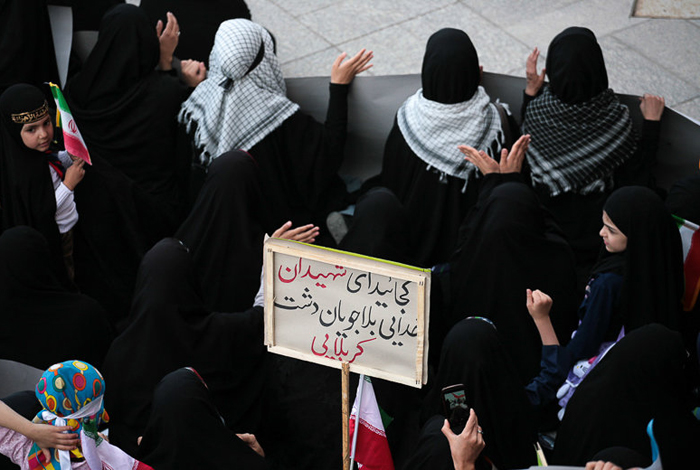 کجائیدای شهیدان
خدایی بلاجویان دشت
کربلایی